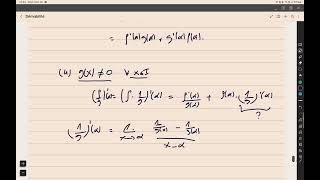 Dérivabilité
= f'(a)g(a) + g'(a)f(a).
g(x) ≠ 0 ∀ x∈I
(f/g)'(a) = (f · 1/g)'(a) = f'(a)/g(a) + f(a) · (1/g)'(a)
?
(1/g)'(a) = lim x→a (1/g(x) − 1/g(a))/(x − a)